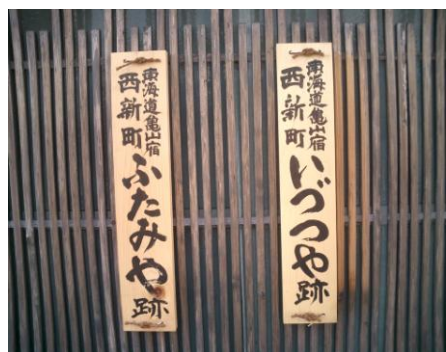 東海道亀山宿
西新町
いづつや跡
東海道亀山宿
西新町
ふたみや跡